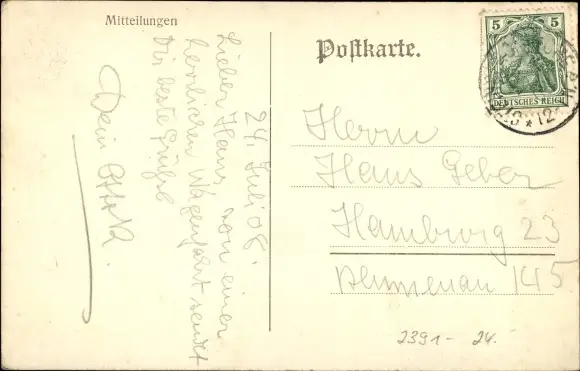 Mitteilungen
Postkarte.
5 5
DEUTSCHES REICH
24. Juli 08.
Lieber Hans, von einer
herrlichen Wagenfahrt sendet
Dir beste Grüße
Dein
Herrn
Hans Geber
Hamburg 23
Blumenau 145
2391- 24.